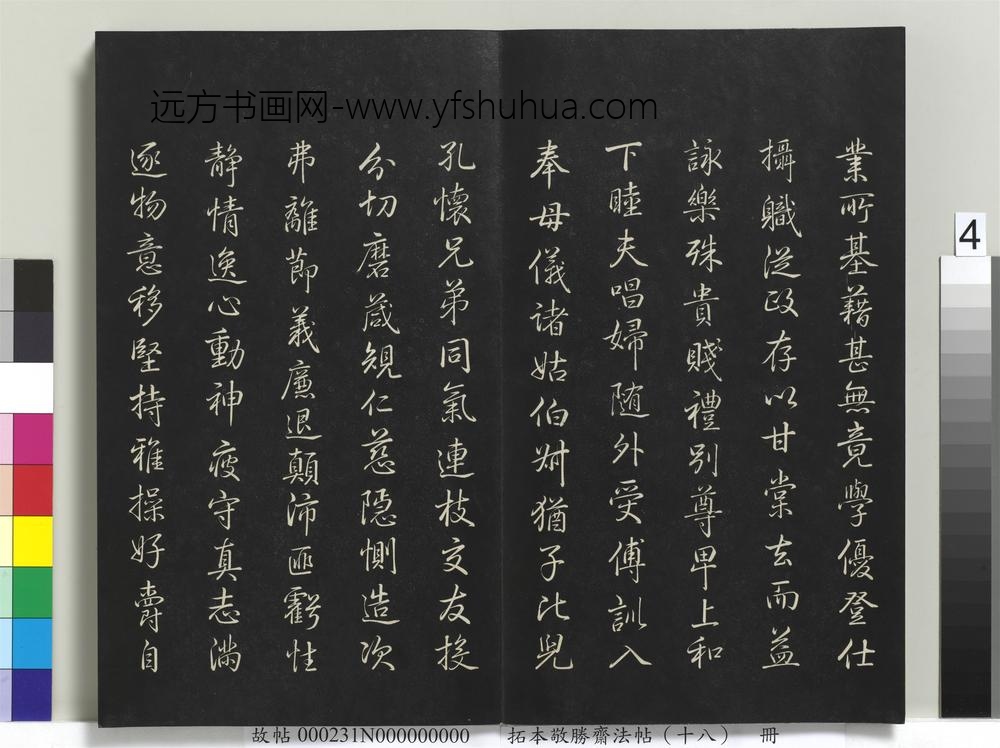 远方书画网-www.yfshuhua.com
業所基藉甚無竟學優登仕
攝職從政存以甘棠去而益
詠樂殊貴賤禮別尊卑上和
下睦夫唱婦随外受傅訓入
奉母儀諸姑伯叔猶子比兒
孔懷兄弟同氣連枝交友投
分切磨箴規仁慈隐惻造次
弗離節義廉退顛沛匪虧性
静情逸心動神疲守真志滿
逐物意移堅持雅操好爵自
4
故帖 000231N000000000 拓本敬勝齋法帖(十八) 冊